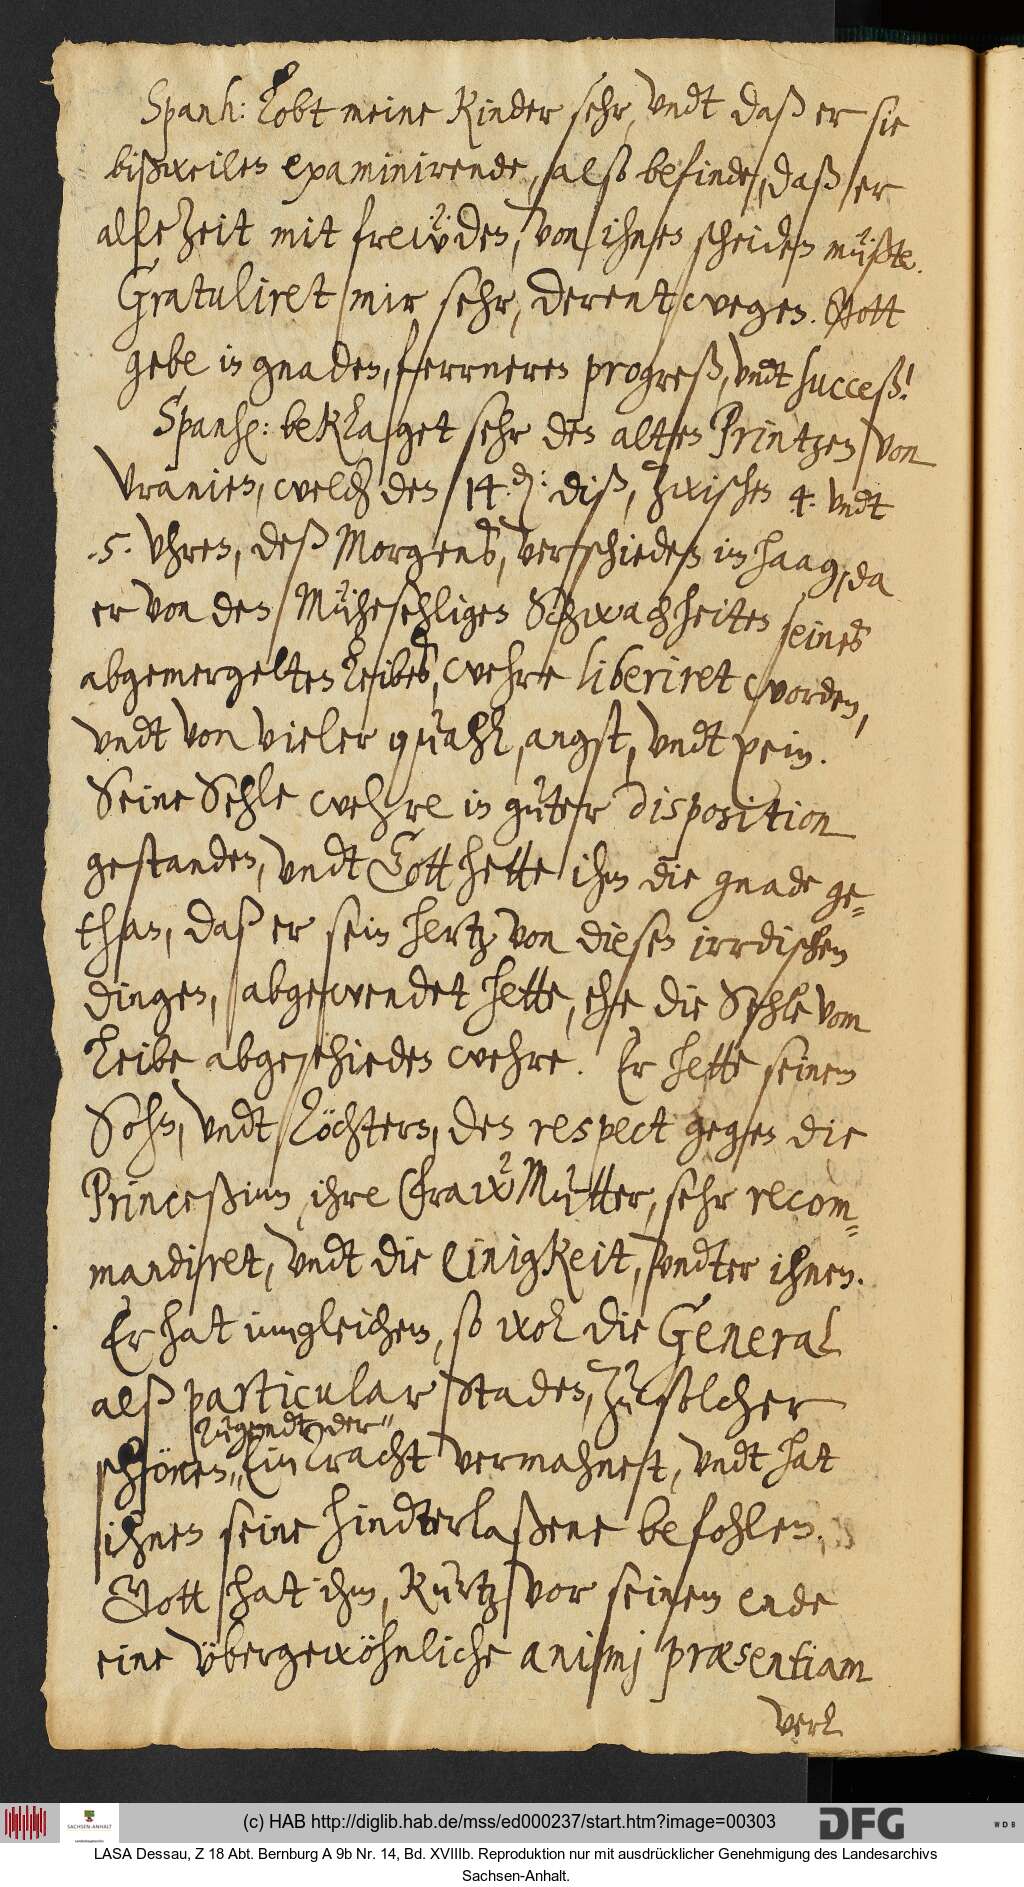 Spanh: Lobt meine Kinder sehr, undt daß er sie
bißweilen examinirende, alß befinde, daß er
allezeit mit frewden, von ihnen scheiden müßte.
Gratuliret mir sehr, derentwegen. Gott
gebe in gnaden, ferrneren progreß, undt succeß!
Spanh: beklaget sehr den alten Printzen von
Uranien, welch den 14. d: diß, zwischen 4. undt
.5. Uhren, deß Morgends, verschieden im Haag, da
er von den Mühesehligen Schwachheiten seines
abgemergelten Leibes, wehre liberiret worden,
undt von vieler quahl, angst, undt pein.
Seine Sehle wehre in guter disposition
gestanden, undt Gott hette ihm die gnade ge=
than, daß er sein hertz von diesen irrdischen
dingen, abgewendet hette, ehe die Sehle vom
Leibe abgeschieden wehre. Er hette seinem
Sohn, undt Töchtern, den respect gegen die
Princeßinn ihre Fraw Mutter, sehr recom=
mandiret, undt die Einigkeit, undter ihnen.
Er hat imgleichen, so wol die General
alß particular Staden, zu solcher
schönen Tugendt der Eintracht vermahnet, undt hat
ihnen seine hindterlaßene befohlen.
Gott hat ihm, kurtz vor seinem ende
eine übergewöhnliche animj præsentiam
verl
(c) HAB http://diglib.hab.de/mss/ed000237/start.htm?image=00303
SACHSEN-ANHALT
DFG
WDB
LASA Dessau, Z 18 Abt. Bernburg A 9b Nr. 14, Bd. XVIIIb. Reproduktion nur mit ausdrücklicher Genehmigung des Landesarchivs
Sachsen-Anhalt.